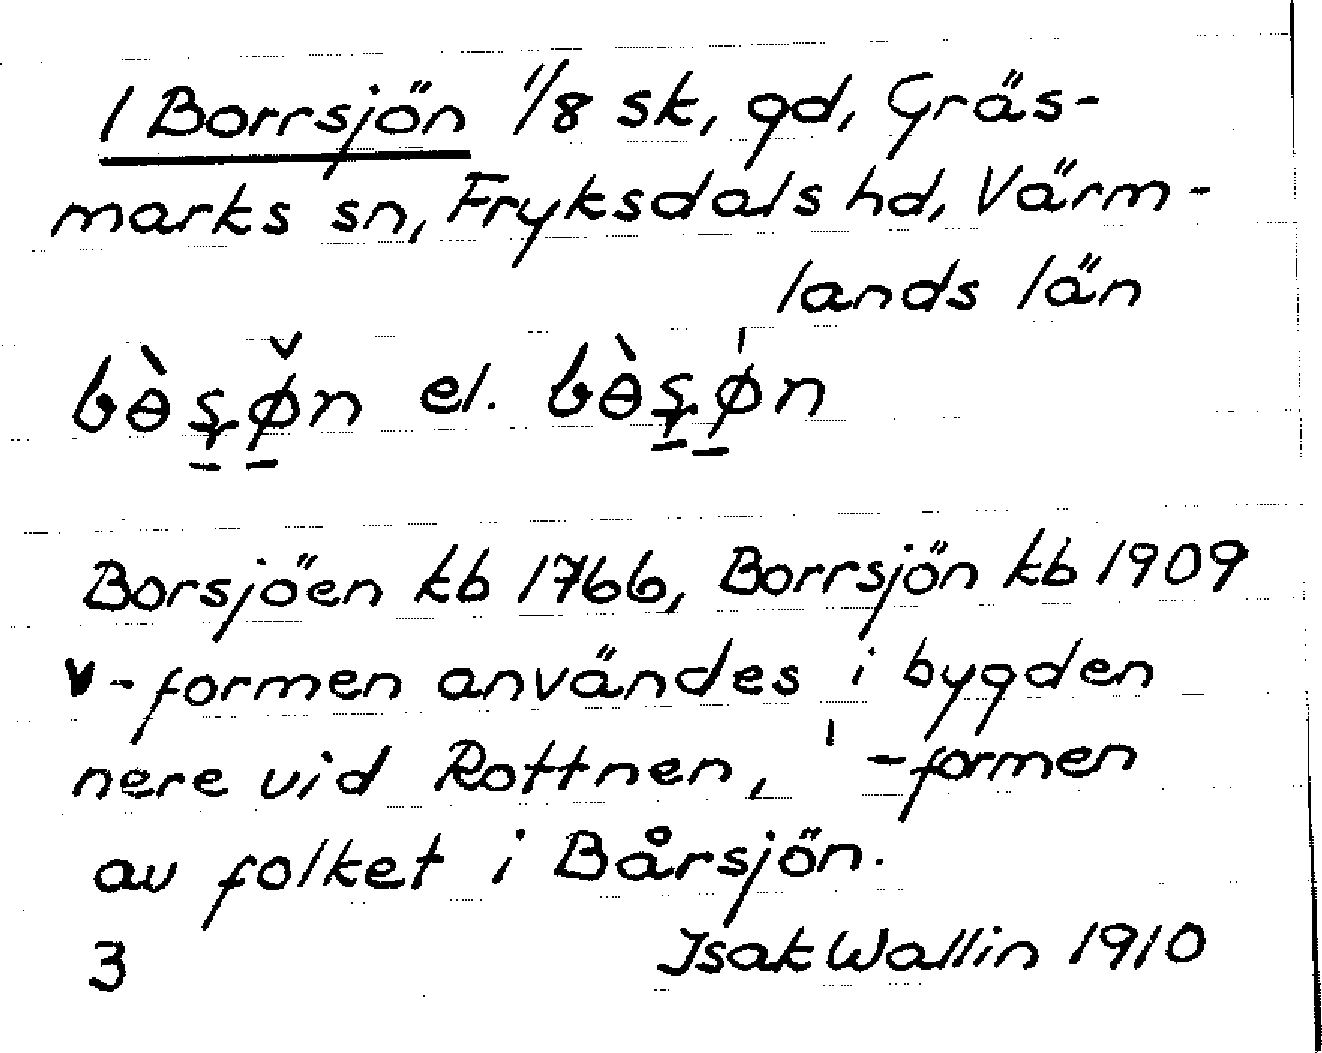 1 Borrsjön 1/8 sk, gd, Gräs-
marks sn, Fryksdals hd, Värm-
lands län
el.
Borsjöen kb 1766, Borrsjön kb 1909
v-formen användes i bygden
nere vid Rottnen, ˈ-formen
av folket i Bårsjön.
3 Isak Wallin 1910